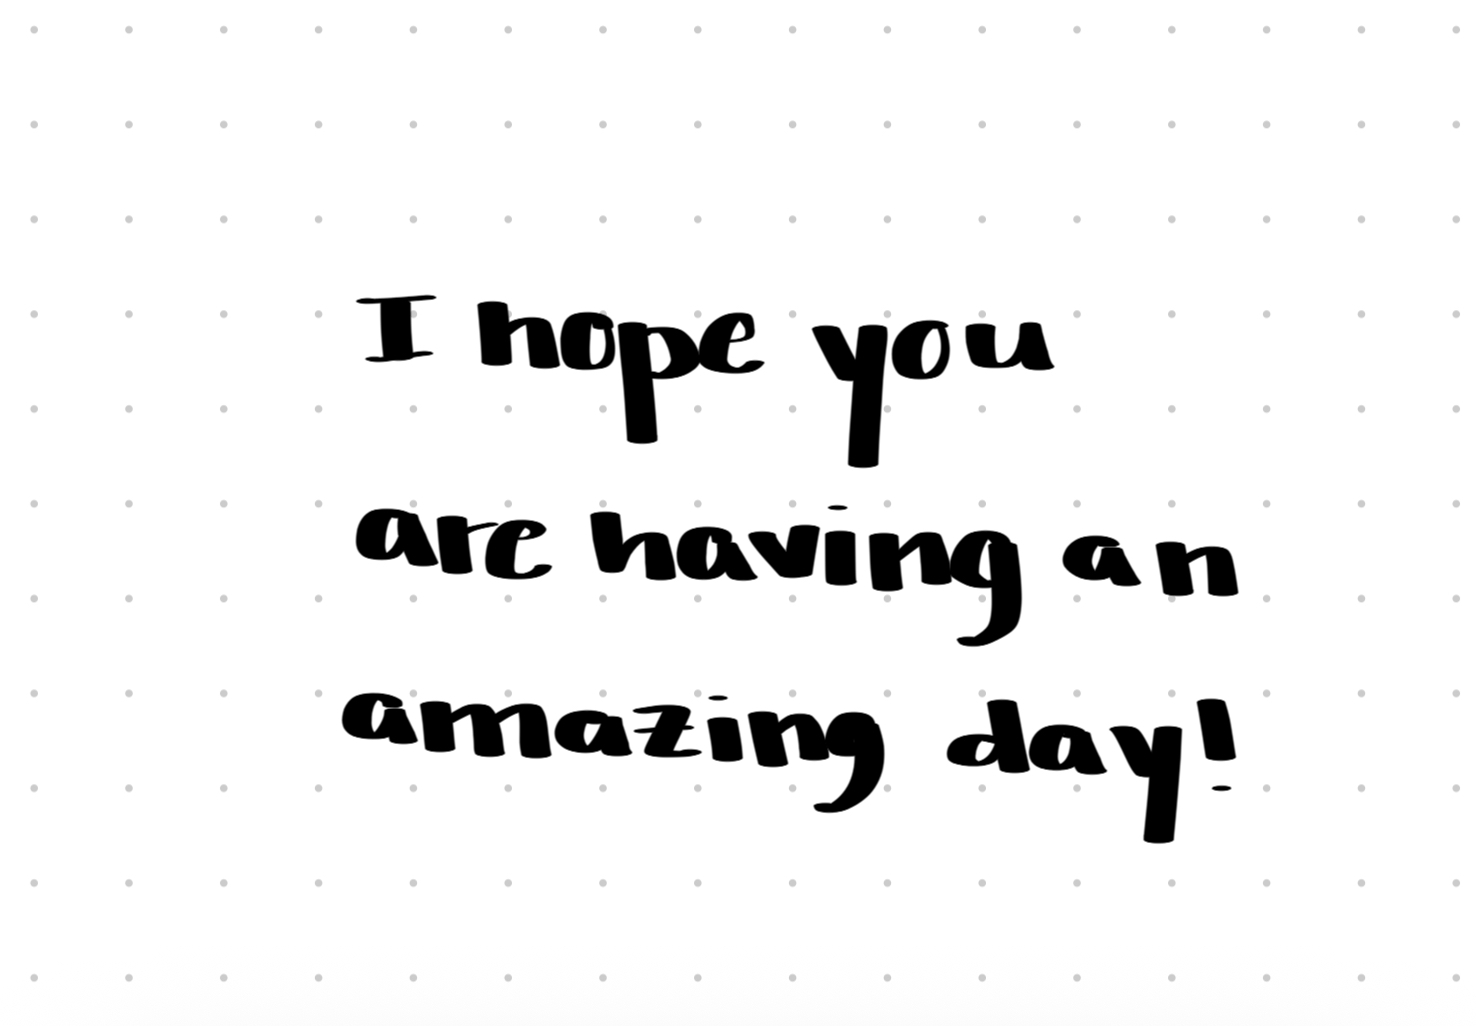 I hope you
are having an
amazing day!